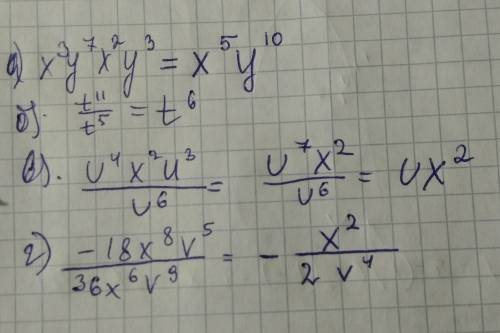 а) x³y⁷x²y³ = x⁵y¹⁰
б). t¹¹/t⁵ = t⁶
в). U⁴x²U³/U⁶ = U⁷x²/U⁶ = Ux²
г) -18x⁸v⁵/36x⁶v⁹ = - x²/2 v⁴